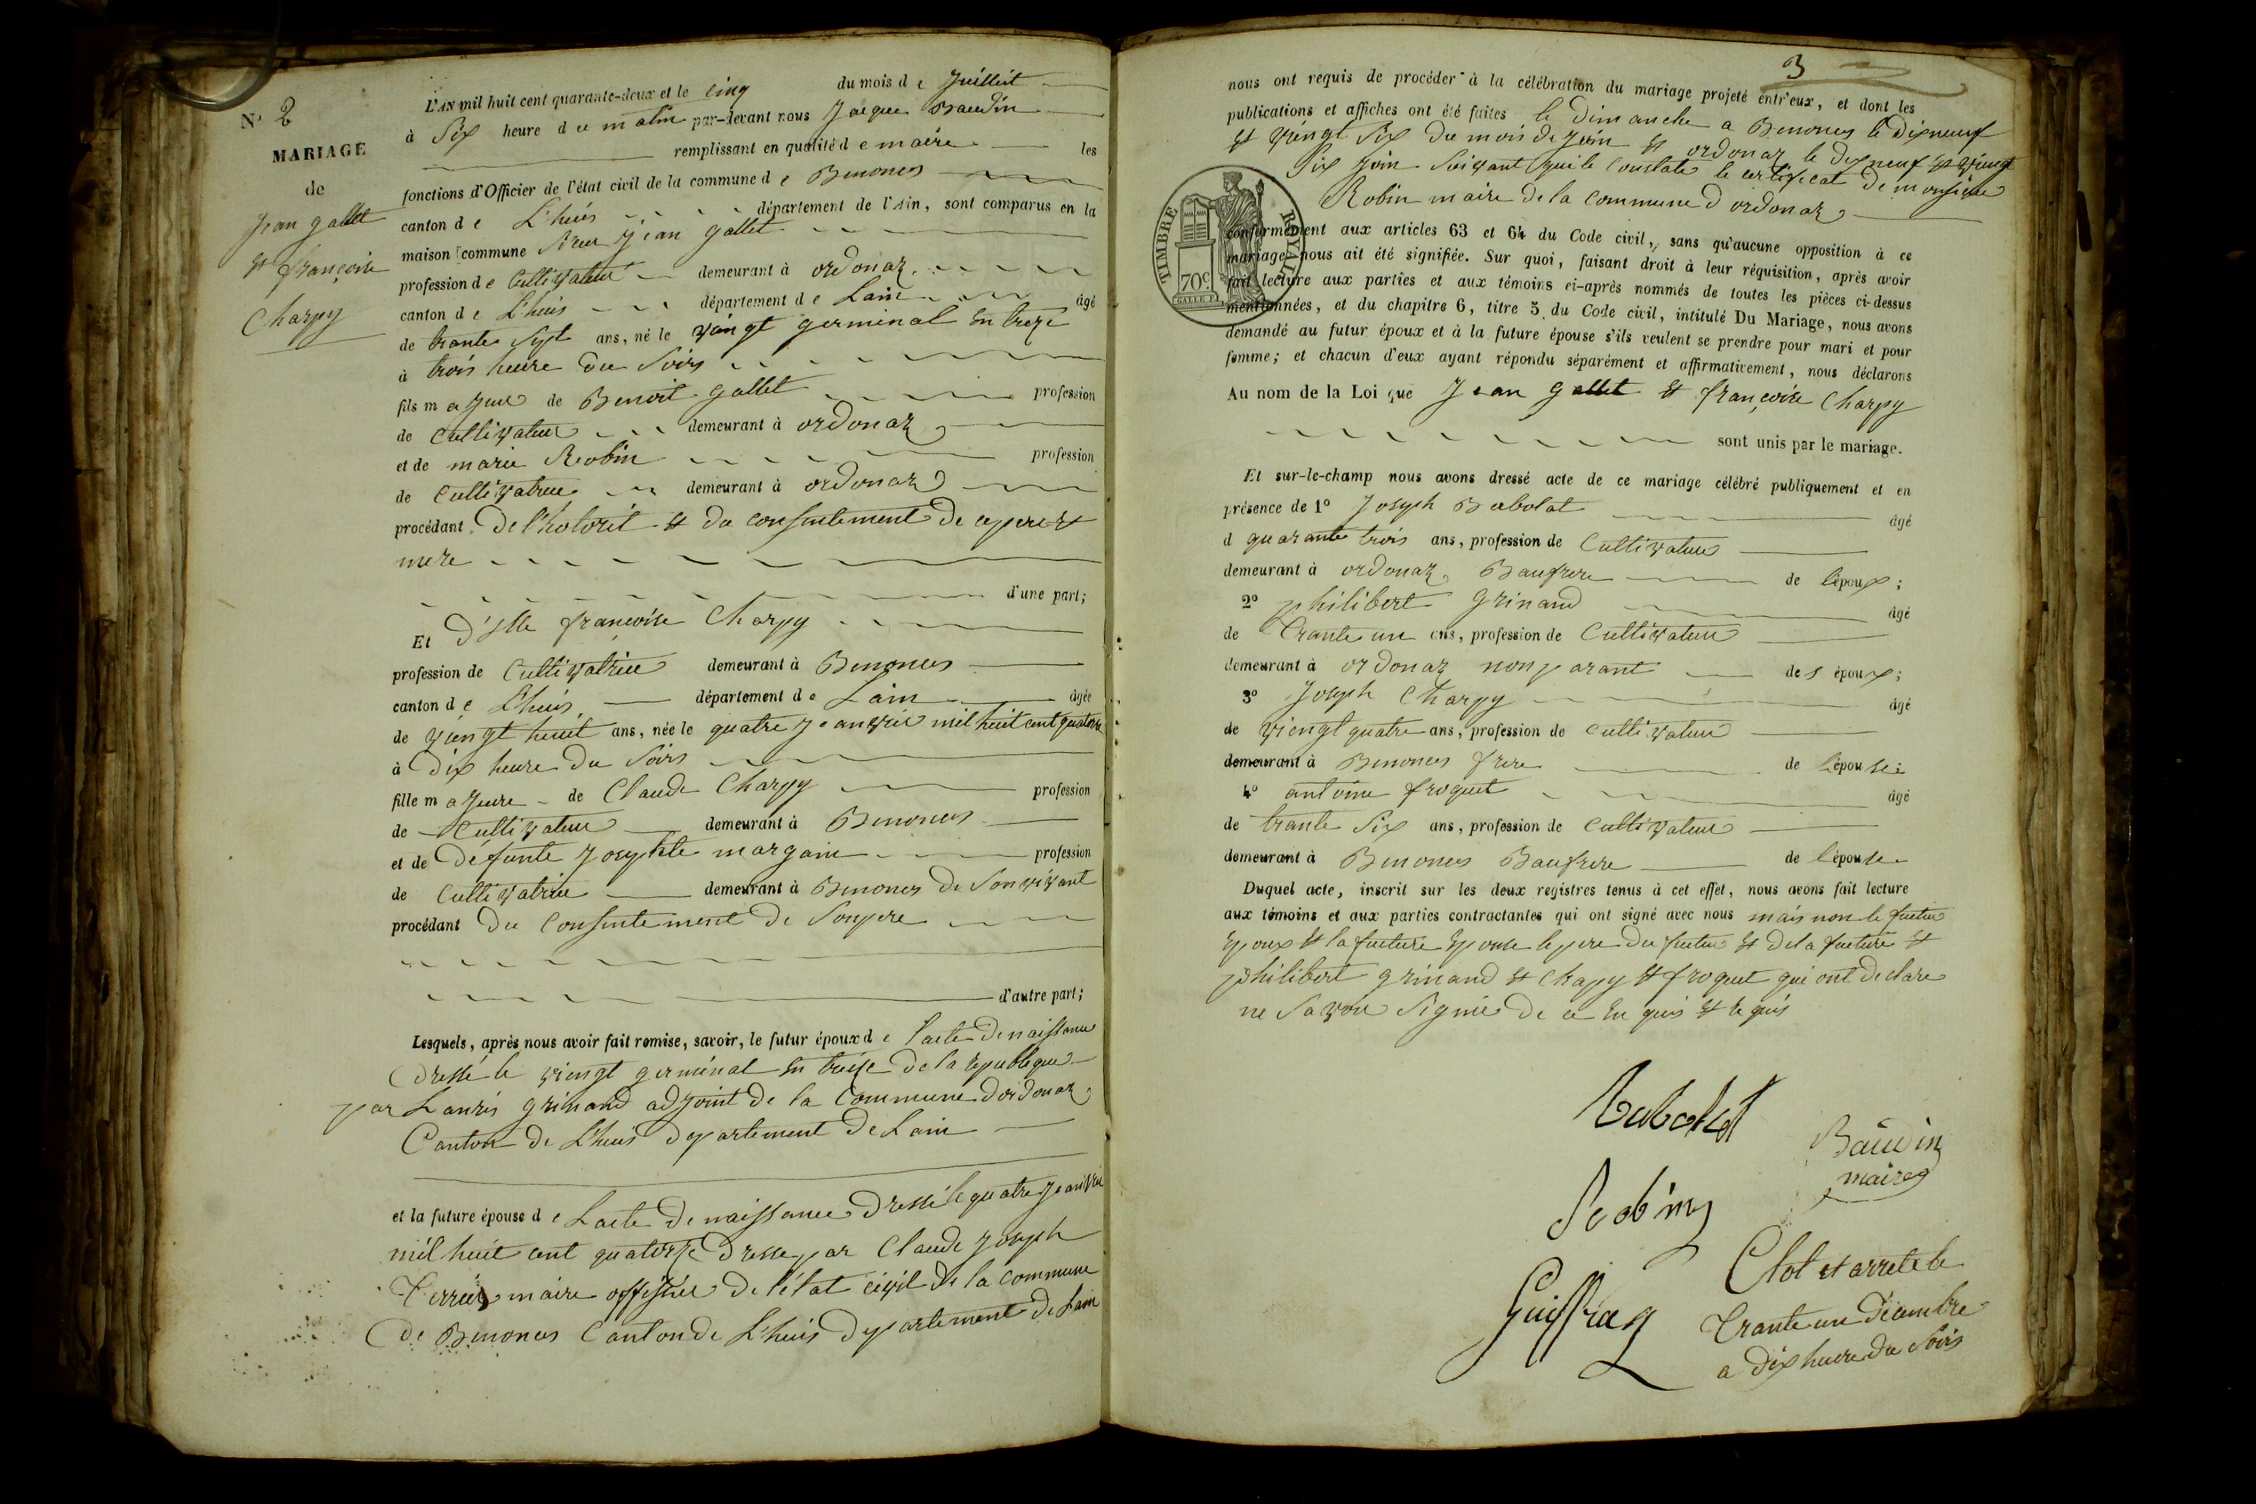 N° 2
MARIAGE
de
Jean gallet
et françoise
Charpy
L'AN mil huit cent quarante-deux et le cinq du mois d e Juillet
à Six heure d u matin par-devant nous Jacque Baudin
remplissant en qualité d e maire les
fonctions d'Officier de l'état civil de la commune d e Benonces
canton d e L'huis département de l'Ain, sont comparus en la
maison commune Sieur Jean gallet
profession d e Cultivateur demeurant à ordonaz
canton d e L'huis département d e Lain âgé
de trante Sept ans, né le vingt germinal en treze
à trois heure du Soirs
fils m ajeur de Benoit gallet profession
de Cultivateur demeurant à ordonaz
et de marie Robin profession
de Cultivatrice demeurant à ordonaz
procédant de et du consentement de ce pere et
mere
d'une part;
Et d'elle françoise Charpy
profession de Cultivatrice demeurant à Benonces
canton d e L'huis département d e Lain âgée
de vingt huit ans, née le quatre Jeanvier mil huit cent quatorze
à dix heure du Soirs
fille m ajeure de Claude Charpy profession
de Cultivateur demeurant à Benonces
et de défunte Josephte margain profession
de Cultivatrice demeurant à Benonces de Son vivant
procédant du Consentement de Son pere
d'autre part;
Lesquels, après nous avoir fait remise, savoir, le futur époux d e lacte de naissance
dressé le vingt germinal en treize de la republique
par Lauris grinand adjoint de la Commune dordonaz
Canton de L'huis departement de Lain
et la future épouse d e Lacte de naissance dressé le quatre Jeanvier
mil huit cent quatorze dresse par Claude Joseph
Terrier maire offisier de l'état civil de la commune
de Benonces Canton de L'huis departement de Lain
3
nous ont requis de procéder à la célébration du mariage projeté entr'eux, et dont les
publications et affiches ont été faites le dimanche a Benonces le dixneuf
et vingt Six du mois de Juin et ordonaz le dix neuf et vingt
Six Juin Suivant quile Constate le certificat de monsieur
Robin maire de la commune d ordonaz
TIMBRE ROYAL
70c.
conformément aux articles 63 et 64 du Code civil, sans qu'aucune opposition à ce
mariage nous ait été signifiée. Sur quoi, faisant droit à leur réquisition, après avoir
fait lecture aux parties et aux témoins ci-après nommés de toutes les pièces ci-dessus
mentionnées, et du chapitre 6, titre 5 du Code civil, intitulé Du Mariage, nous avons
demandé au futur époux et à la future épouse s'ils veulent se prendre pour mari et pour
femme; et chacun d'eux ayant répondu séparément et affirmativement, nous déclarons
Au nom de la Loi que Jean gallet et françoise Charpy
sont unis par le mariage.
Et sur-le-champ nous avons dressé acte de ce mariage célébré publiquement et en
présence de 1° Joseph Babolat âgé
d quarante trois ans, profession de Cultivateur
demeurant à ordonaz Baufrere de lépoux;
2° philibert grinand âgé
de trante un ans, profession de Cultivateur
demeurant à ordonaz non parant des époux;
3° Joseph Charpy âgé
de vingt quatre ans, profession de Cultivateur
demeurant à Benonces frere de lépouse;
4° antoine froquet âgé
de trante Six ans, profession de Cultivateur
demeurant à Benonces Baufrere de lépouse
Duquel acte, inscrit sur les deux registres tenus à cet effet, nous avons fait lecture
aux témoins et aux parties contractantes qui ont signé avec nous mais non le futur
epoux et la future epouse le pere du futur et de la future et
philibert grinand et Chapy et froquet qui ont declare
ne Savoir Signier de ce en quis et requis
Babolat
Baudin
maire
Robin
Clot et arrete le
trante un decembre
a dix heure du Soirs